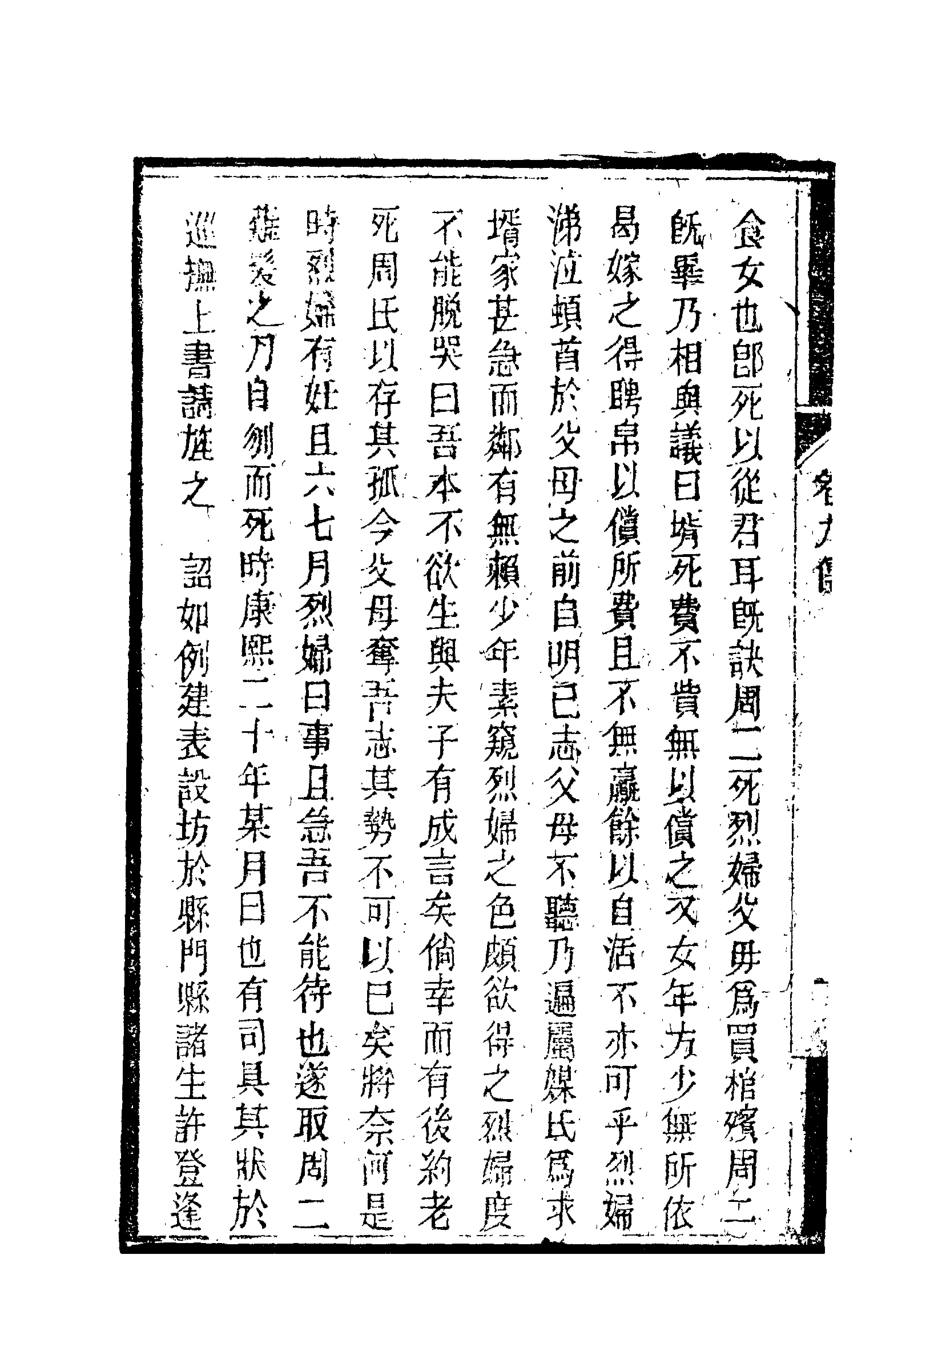 食女也卽死以從君耳旣訣周二死烈婦父毋爲買棺殯周二
旣畢乃相與議曰壻死費不貲無以償之又女年方少無所依
曷嫁之得聘帛以償所費且不無贏餘以自活不亦可乎烈婦
涕泣頓首於父母之前自明已志父母不聽乃遍屬媒氏爲求
壻家甚急而鄰有無賴少年素窺烈婦之色頗欲得之烈婦度
不能脫哭曰吾本不欲生與夫子有成言矣倘幸而有後約老
死周氏以存其孤今父母奪吾志其勢不可以已矣將奈何是
時烈婦有妊且六七月烈婦曰事且急吾不能待也遂取周二
薙髮之刀自刎而死時康熙二十年某月日也有司具其狀於
巡撫上書請旌之 詔如例建表設坊於縣門縣諸生許登逢